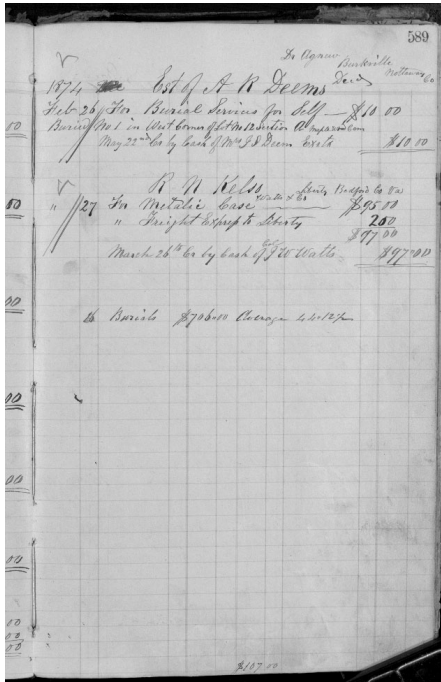 589
Dr Agnew Burkville
Nottoway Co
1874 Est of A R Deems Dec'd
Feb 26 For Burial Services for Self — $10 00
Buried No 1 in West Corner of Lot No 12 Section A
May 22nd Cr by Cash of Mrs J D Deem Exetx $10.00
R N Kelso Liberty Bedford Co Va
Watts & Co
" 27 For Metalic Case — $95 00
" Freight Express to Liberty 2 00
$97 00
March 26th Cr by Cash of J W Watts $97.00
16 Burials $706.00 Average 44.12½
$107.00
00
00
00
00
00
00
00
00
00